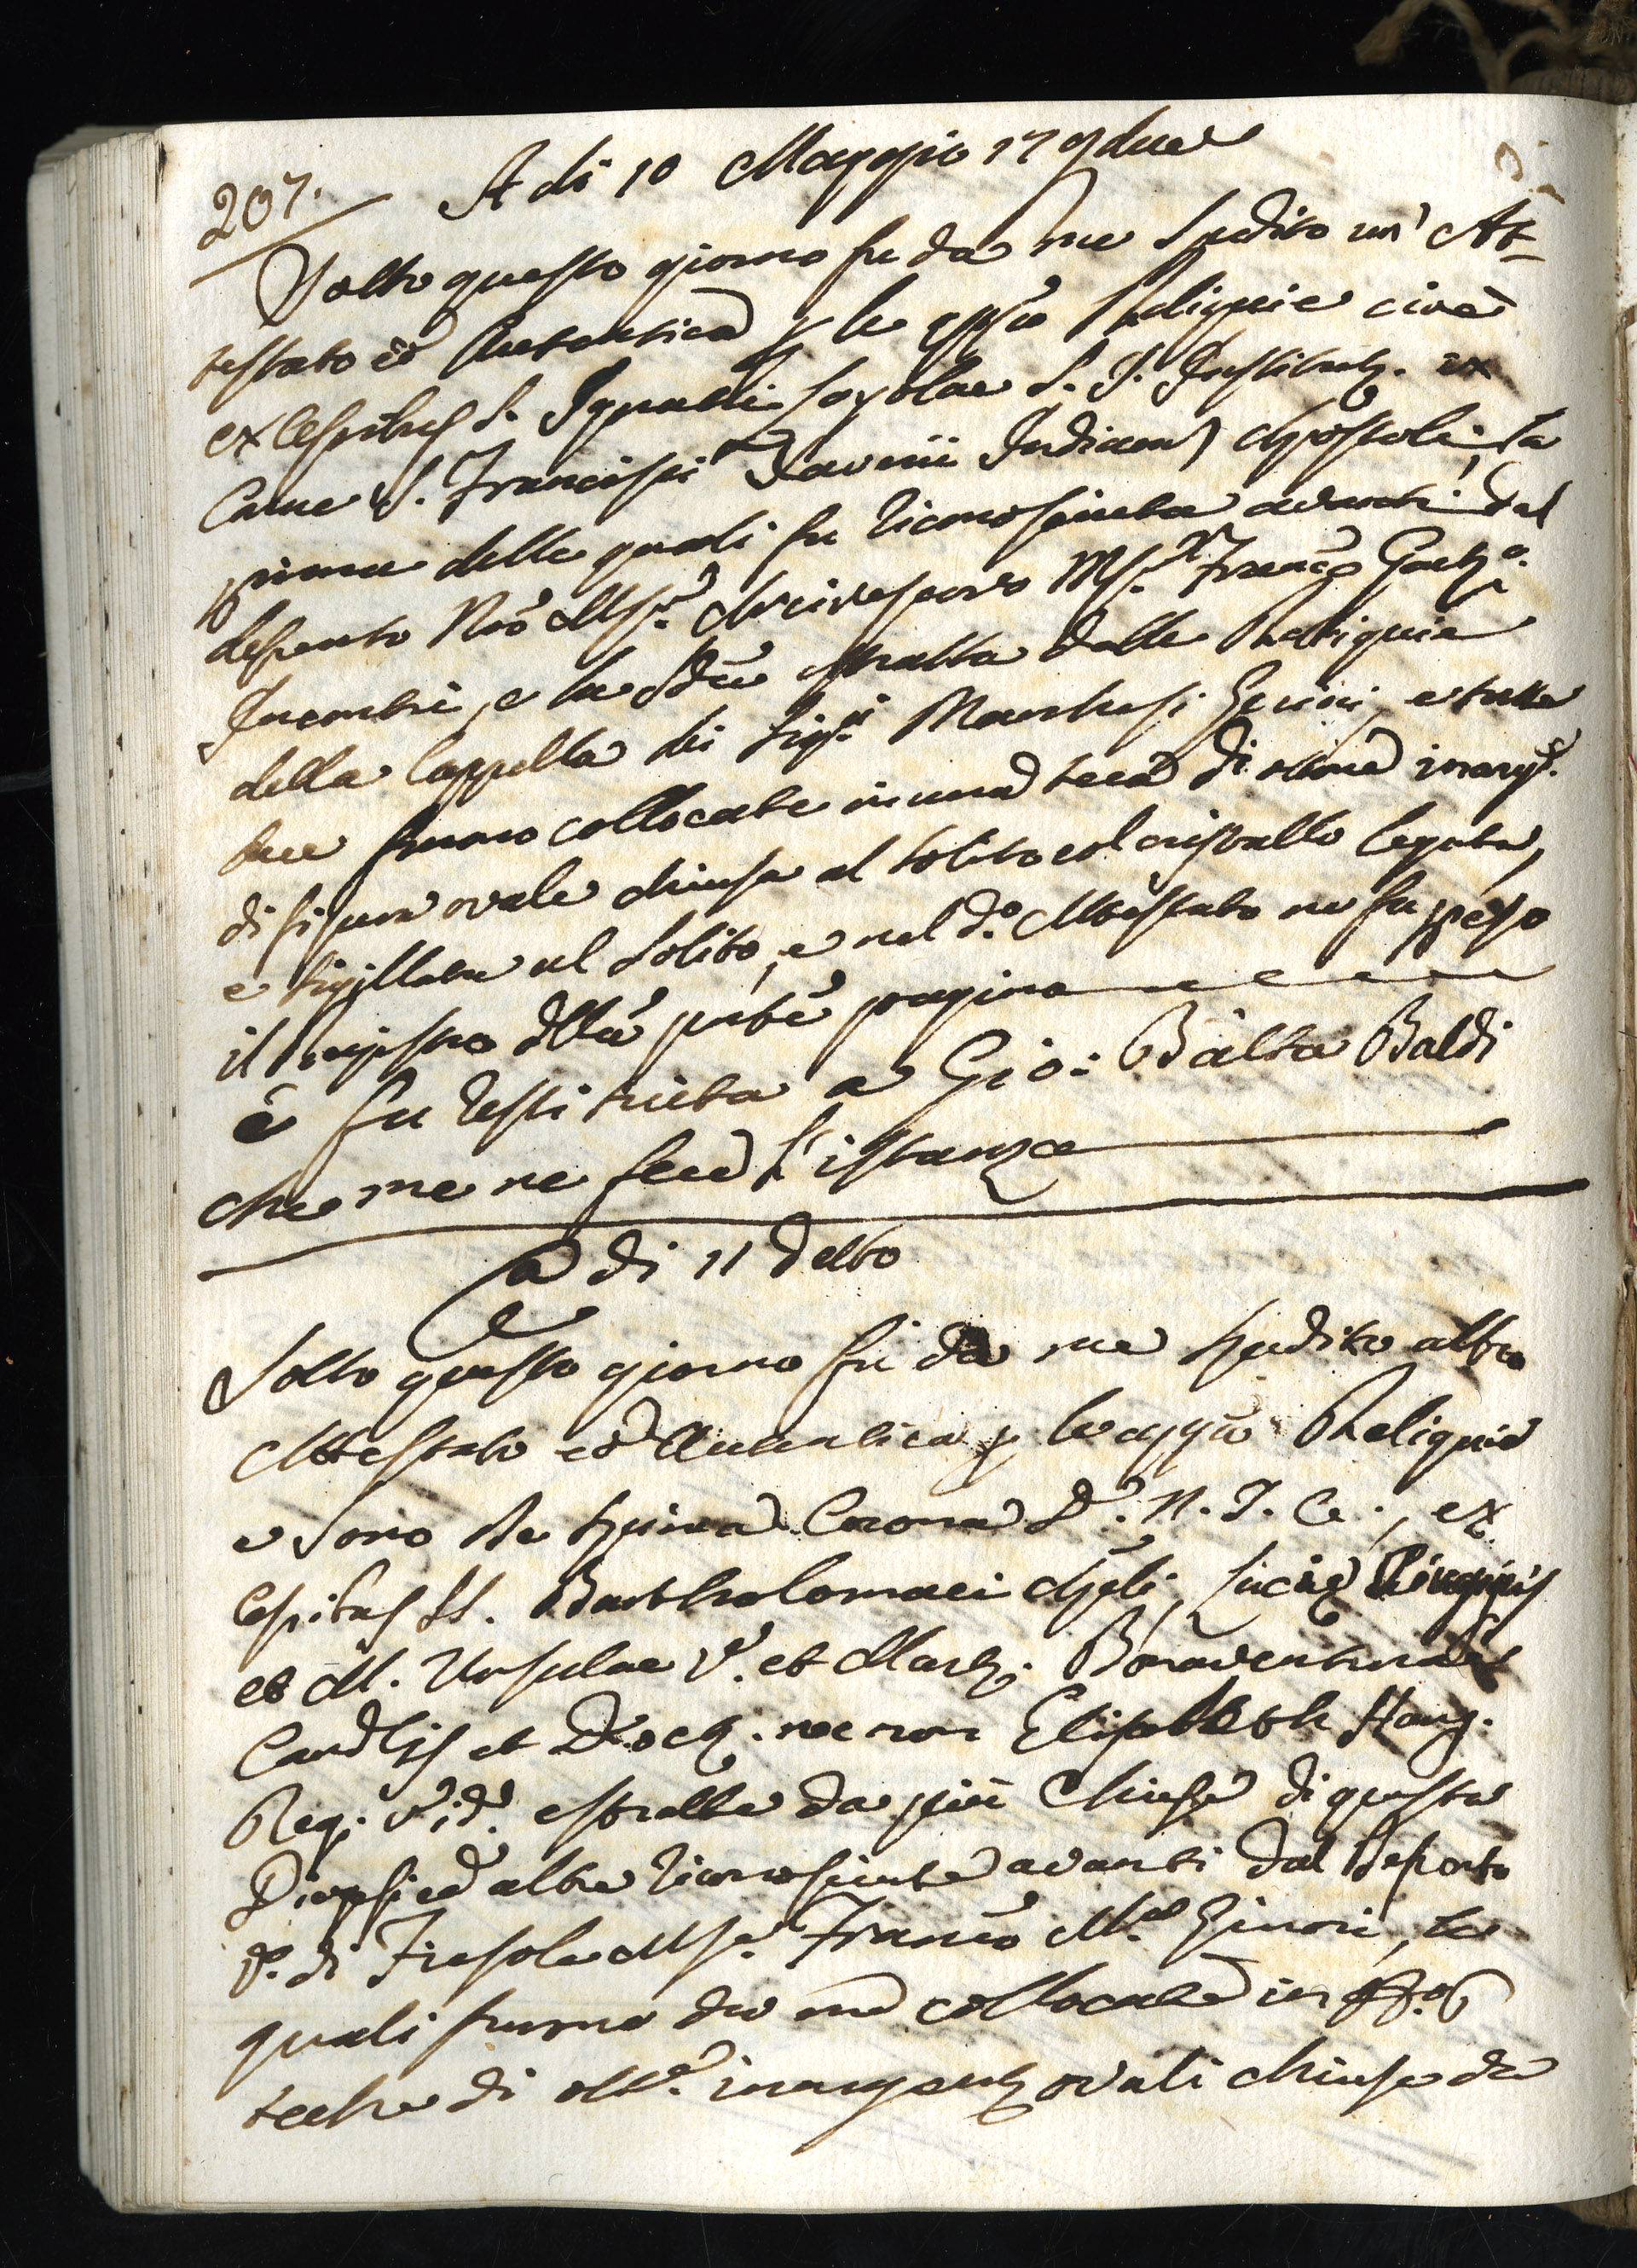 207. A di 10 Maggio 179due
Sotto questo giorno fu da me spedito un' At-
testato ed Autentica p le appiè Reliquie cioè
ex Cespitus S. Ignatii Loyolae S. J. Institut. ex
Carne S. Francisci Xaverii Indiarum Apostoli, la
prima delle quali fu riconosciuta avanti dal
defunto Mõ Msr. Arcivescovo Msr. Franc̃o Gaet.o
Incontri, e la 2da estratta dalle Reliquie
della Cappella dei Sigri. Marchesi Gerini, e tutte
due furono collocate in una teca di rame inarg.
di figura ovale chiusa al solito col cristallo legata,
e sigillata al solito, e nel do. Attestato ne fu preso
il registro dlla pnte pagina
e fu restituita a Gio: Batta Baldi
che me ne fece l'istanza
A di 11 detto
Sotto questo giorno fu da me spedito altro
Attestato ed Autentica p le appiè Reliquie
e sono De Spinea Corona D. N. J. C., ex
Cespitus SS. Bartholomaei Apli, Luciae Virginis
et M. Ursulae V. et Mart. Bonaventurae
Cardlis et Doct. nec non Elisabeth Hung.
Reg. Vid. estratte da più Chiese di questa
Diogesi ed altre riconosciute avanti dal defonto
V. di Fiesole Msr. Franc̃o Ma. Ginori, le
quali furono da me collocate in
teche di ott. inargent ovali chiuse da